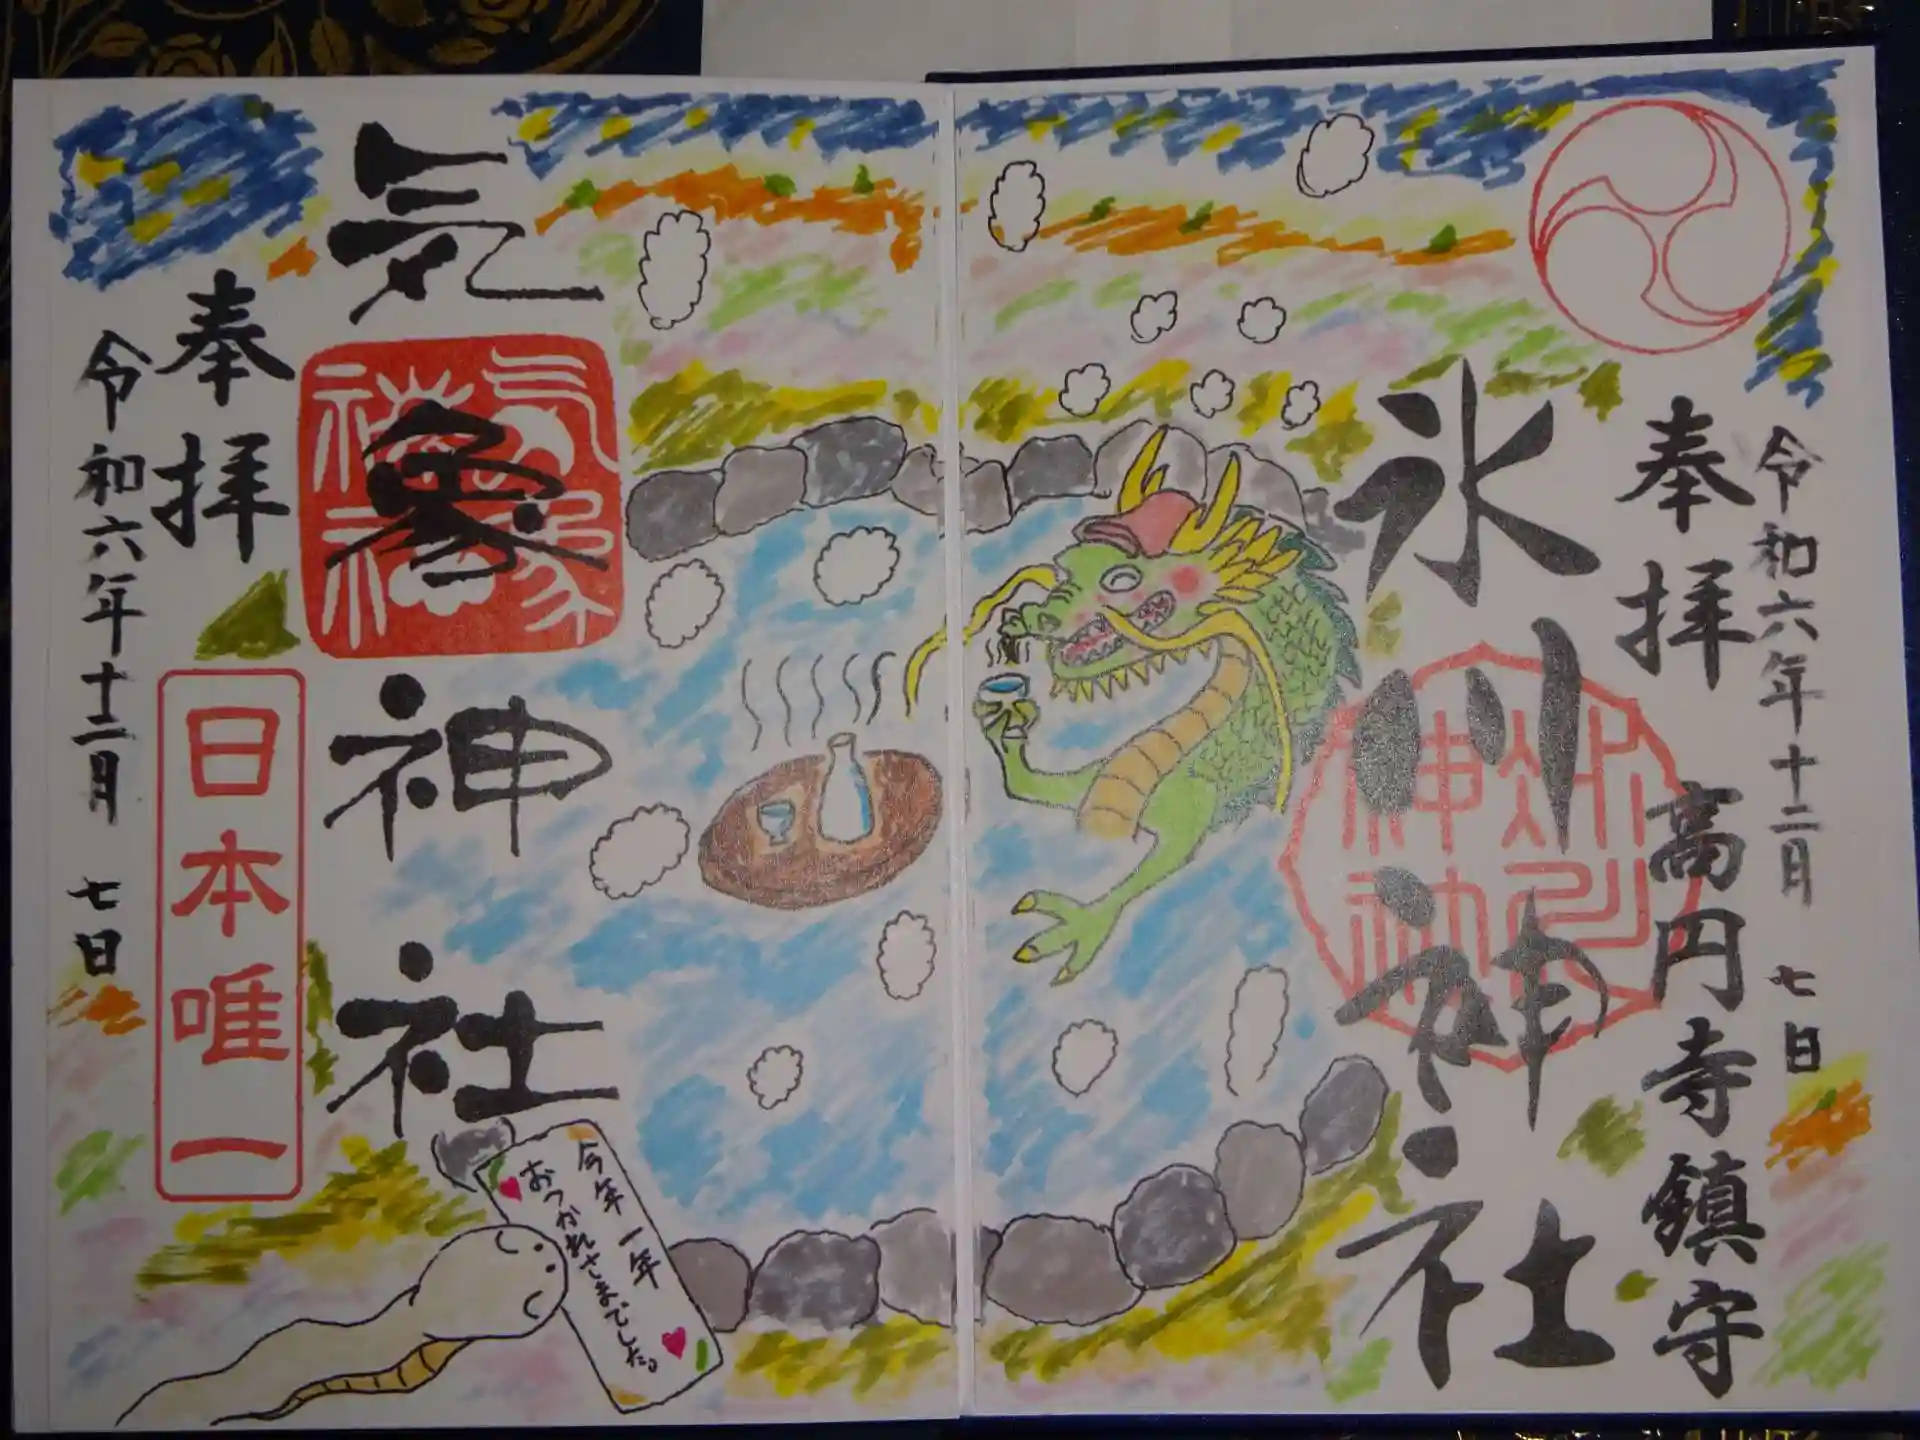 令和六年十二月 七日
奉拝
高円寺鎮守
氷川神社
気象神社
気象神社
奉拝
日本唯一
令和六年十二月 七日
今年一年
おつかれさまでした。